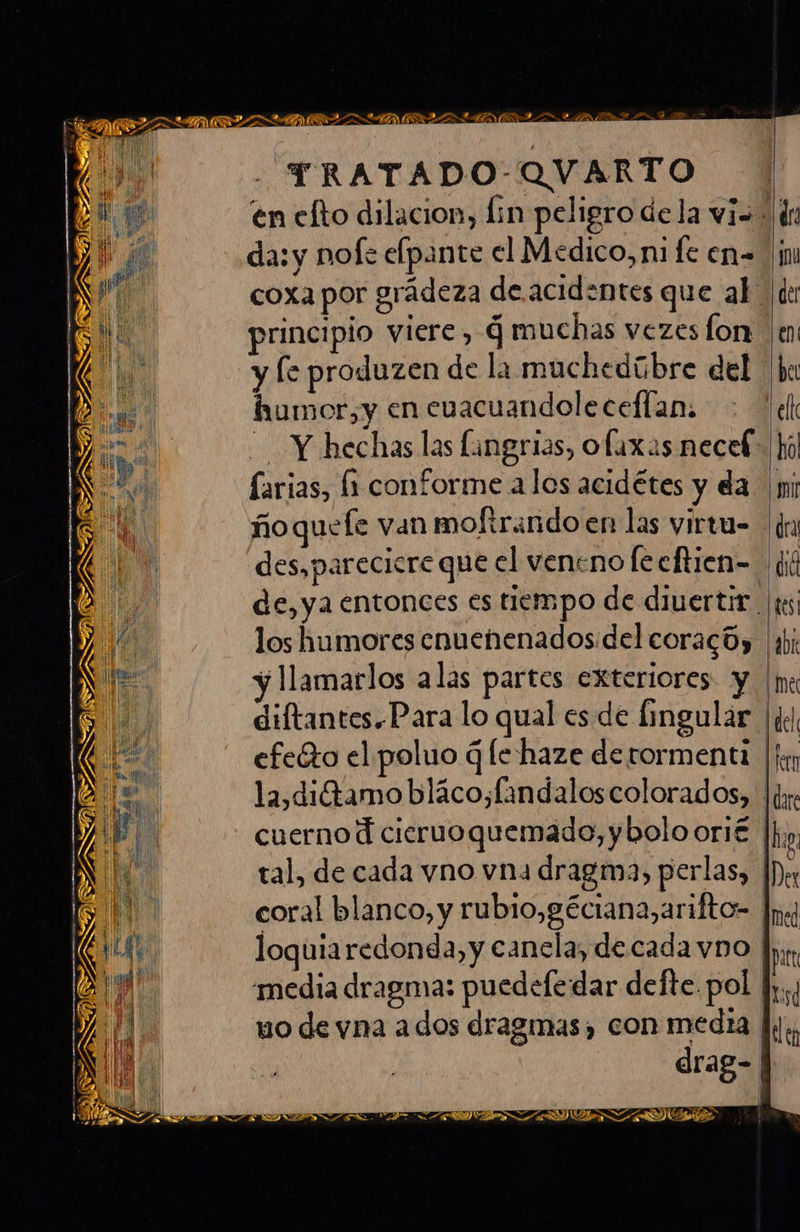 TRATADO QVARTO
en eſto dilacion, ſin peligro de la vi-
da:y noſe eſpante el Medico, ni ſe en-
coxa por grãdeza de acidentes que al
principio viere, q̃ muchas vezes ſon
y ſe produzen de la muchedũbre del
humor,y en euacuandole ceſſan.
Y hechas las ſangrias, o ſaxas neceſ-
ſarias, ſi conforme a los acidẽtes y da
ño que ſe van moſtrando en las virtu-
des,pareciere que el veneno ſe eſtien-
de,ya entonces es tiempo de diuertir
los humores enuenenados del coraçõ,
y llamarlos a las partes exteriores y
diſtantes. Para lo qual es de ſingular
efecto el poluo q̃ ſe haze de tormenti
la,dictamo blãco,ſandalos colorados,
cuerno đ cieruo quemado,y bolo oriẽ
tal, de cada vno vna dragma, perlas,
coral blanco, y rubio,gẽciana,ariſto-
loquia redonda,y canela, de cada vno
media dragma: puedeſe dar deſte pol
uo de vna a dos dragmas, con media
drag-